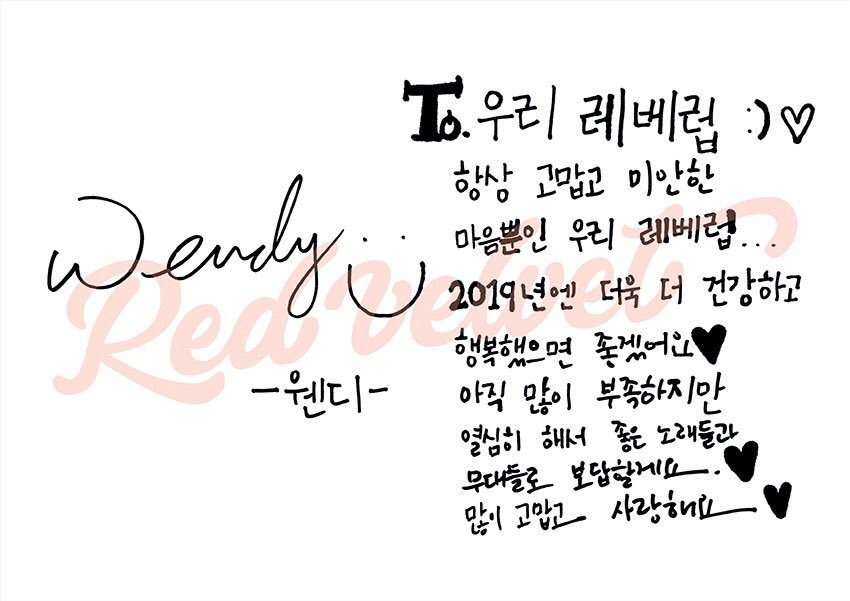 Wendy
Red Velvet
-웬디-
To. 우리 레베럽 :) ♡
항상 고맙고 미안한
마음뿐인 우리 레베럽...
2019년엔 더욱 더 건강하고
행복했으면 좋겠어요♥
아직 많이 부족하지만
열심히 해서 좋은 노래들과
무대들로 보답할게요. ♥
많이 고맙고 사랑해요 ♥